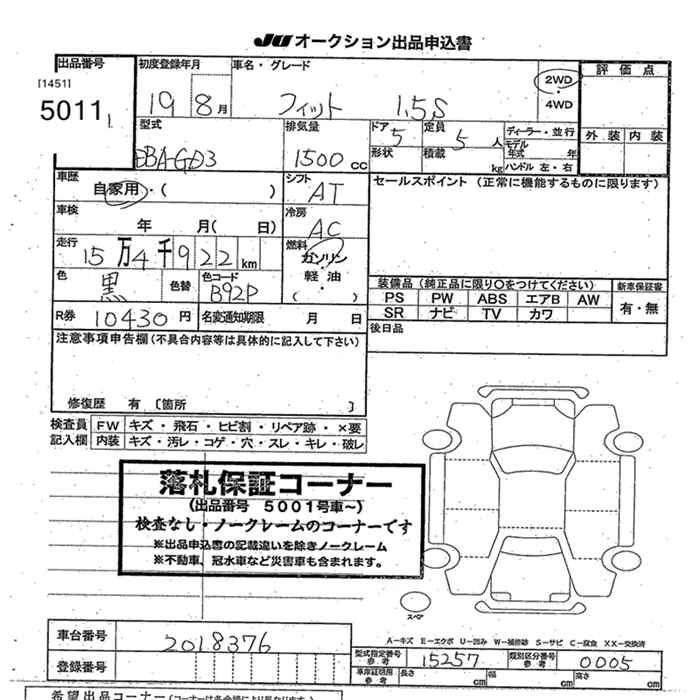 JU オークション出品申込書
出品番号 初度登録年月 車名・グレード 評価点
[1451]
5011 19 8月 フィット 1.5S 2WD・4WD
外装 内装
型式 排気量 ドア 定員 ディーラー・並行
DBA-GD3 1500cc 5 5人 モデル年式 年
形状 積載 kg ハンドル 左・右
車歴 シフト セールスポイント (正常に機能するものに限ります)
自家用・( ) AT
車検 冷房
年 月(日) AC
走行 燃料
15万4千922km ガソリン・軽油・( )
色 色替 色コード
黒 B92P
装備品 (純正品に限り〇をつけてください) 新車保証書
PS PW ABS エアB AW 有・無
SR ナビ TV カワ
R券 10430円 名変通知期限 月 日
後日品
注意事項申告欄(不具合内容等は具体的に記入して下さい)
修復歴 有 〔箇所 〕
検査員 FW キズ・飛石・ヒビ割・リペア跡・×要
記入欄 内装 キズ・汚レ・コゲ・穴・スレ・キレ・破レ
落札保証コーナー
(出品番号 5001号車～)
検査なし・ノークレームのコーナーです
※出品申込書の記載違いを除きノークレーム
※不動車、冠水車など災害車も含まれます。
スペア
A－キズ E－エクボ U－凹み W－補修跡 S－サビ C－腐食 XX－交換済
車台番号 2018376
型式指定番号 参考 15257 類別区分番号 参考 0005
登録番号
車庫証明用 参考 長さ cm 幅 cm 高さ cm
希望出品コーナー